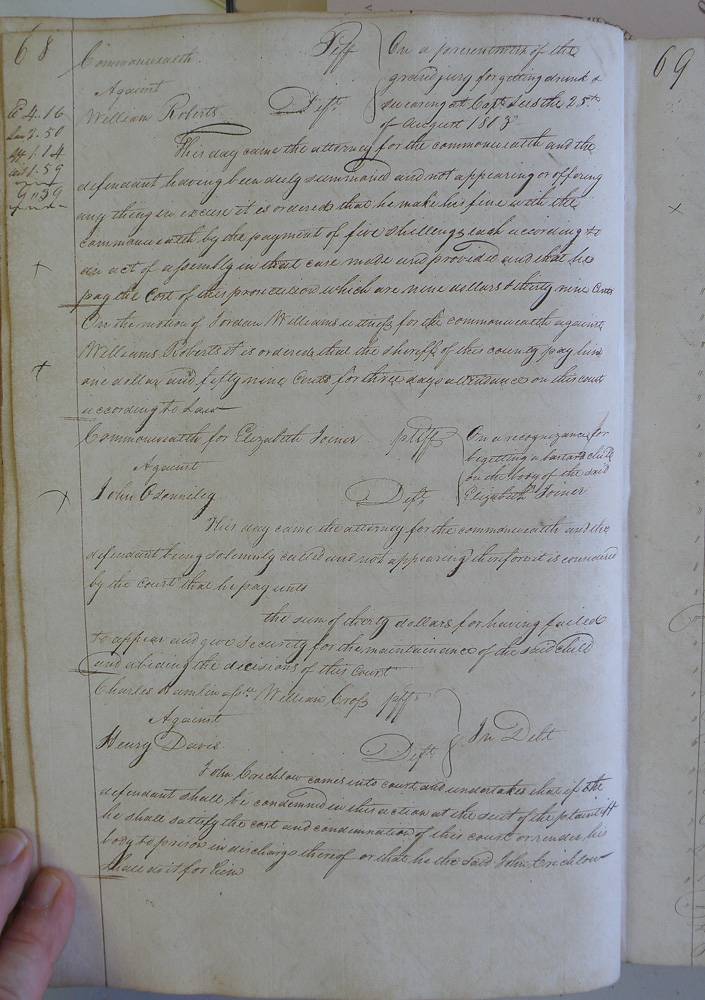 68
69
Commonwealth Plff On a presentment of the
Against grand jury for getting drunk &
William Roberts Deft. swearing at Capt. the 25th
of August 1813
4.16
2.50
1.14
1.59
9"39
This day came the attorney for the commonwealth and the
defendant having been duly summoned and not appearing or offering
any thing in excuse it is ordered that he make his fine with the
commonwealth by the payment of five shillings each according to
an act of assembly in that case made and provided and that he
pay the cost of this prosecution which are nine dollars & thirty nine Cents
On the motion of Jordan Williams witness for the commonwealth against
Williams Roberts it is ordered that the sheriff of this county pay him
one dollar and fifty nine Cents for three days attendance on this court
according to Law
Commonwealth for Elizabeth Joiner plff On a recognizance for
Against begetting a bastard child
on the body of the said
John Deft. Elizabeth Joiner
This day came the attorney for the commonwealth and the
defendant being solemnly called and not appearing therefore it is considered
by the court that he pay unto
the sum of thirty dollars for having failed
to appear and give security for the maintainance of the said child
and abiding the decisions of this Court
Charles Hamlin assee. William Cross plff
Against In Debt
Henry Davis Deft
John Crichlow comes into court and undertakes that if the
defendant shall be condemned in this action at the suit of the plaintiff
he shall sattisfy the cost and condemnation of this court or render his
body to prison in discharge thereof or that he the said John Crichlow
shall do it for him